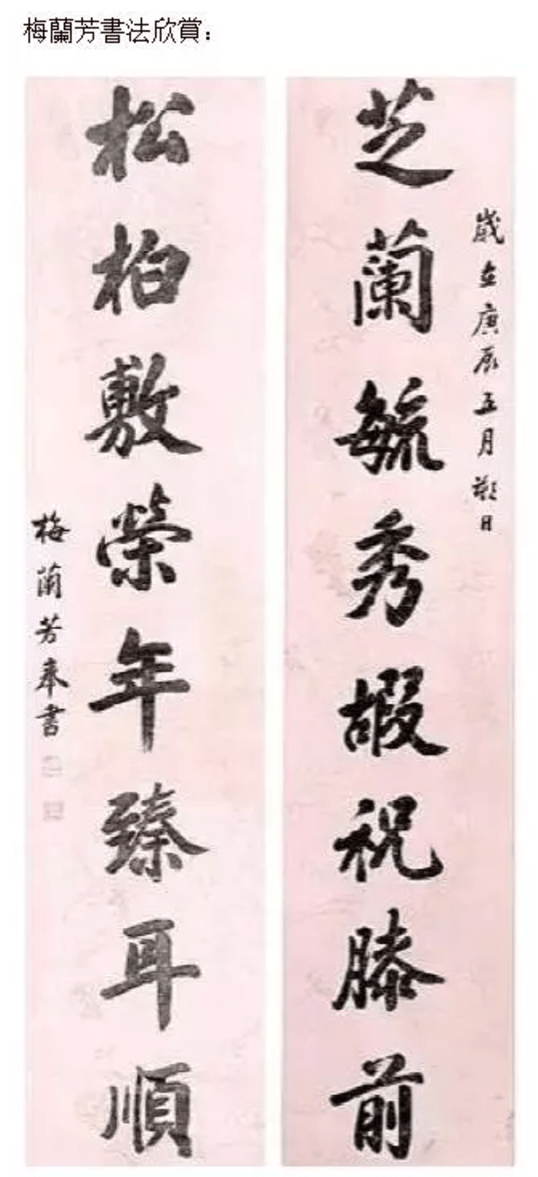 梅蘭芳書法欣賞：
歲在庚辰五月朔日
芝蘭毓秀嘏祝膝前
松柏敷榮年臻耳順
梅蘭芳奉書